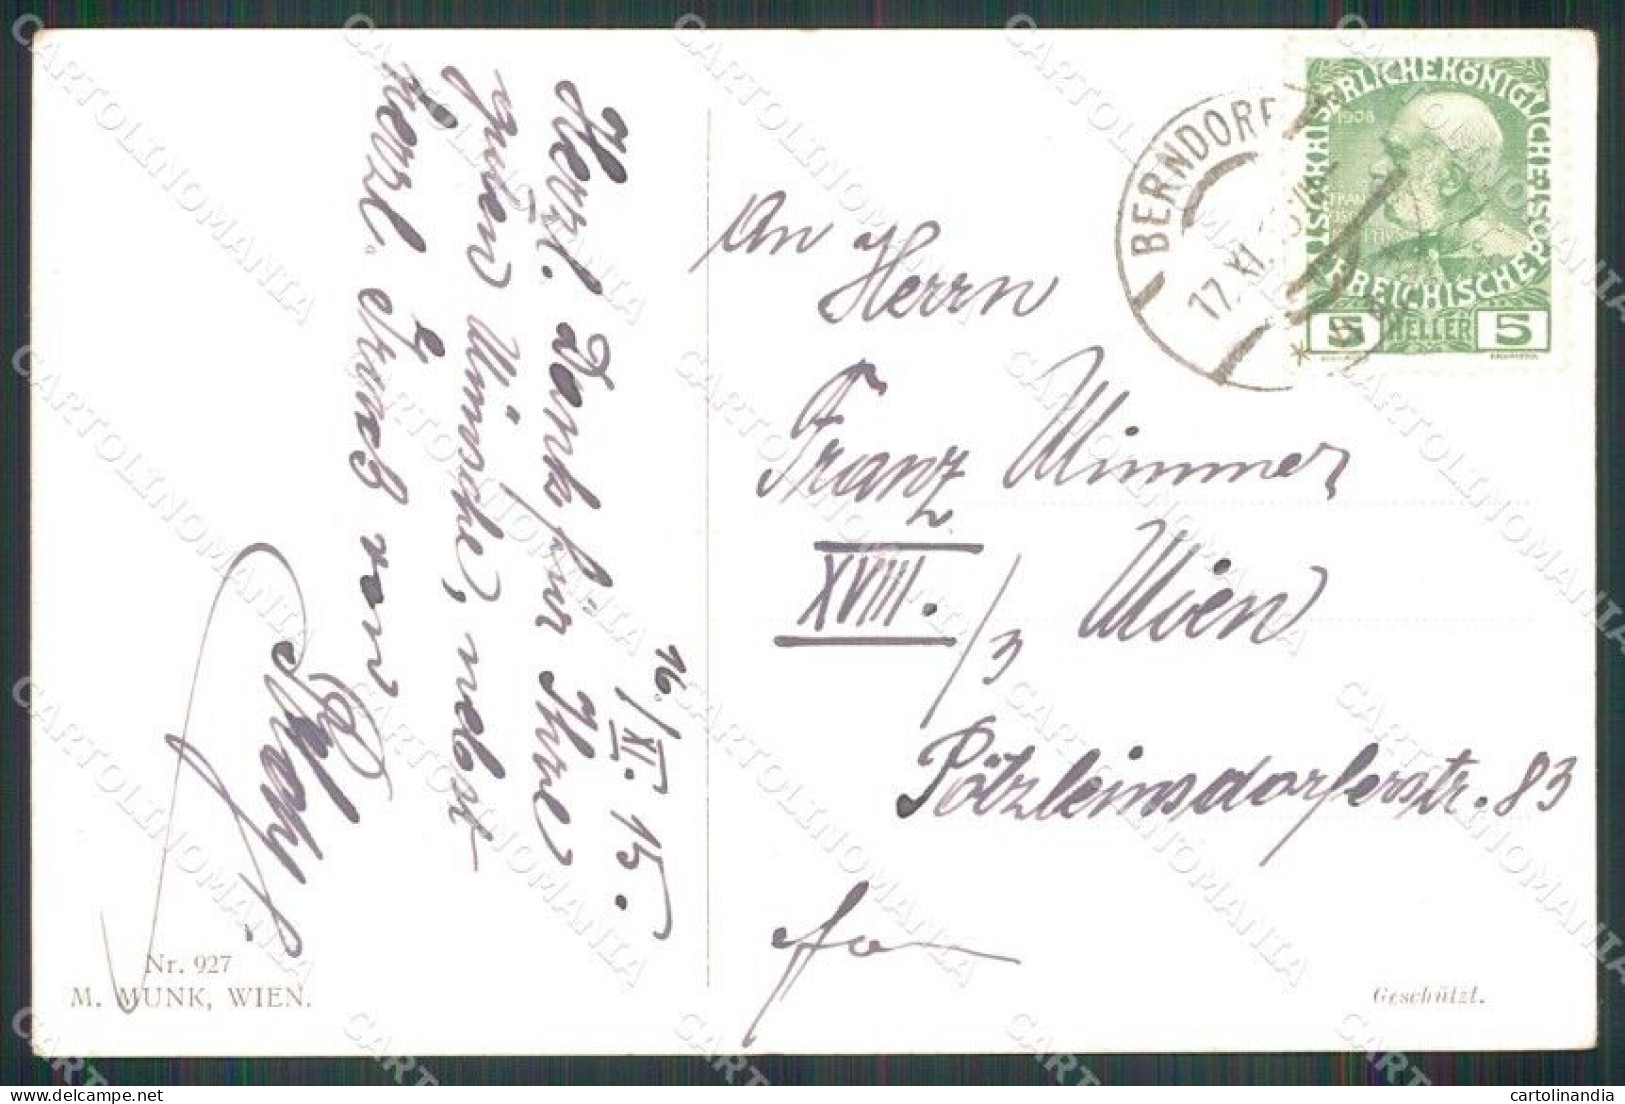 16./XI. 15.
Herzl. Dank für Ihre
guten Wünsche, nebst
herzl. Gruß von
BERNDORF
17. XI. 15
KAISERLICHE KÖNIGLICHE ÖSTERREICHISCHE POST
1908
5 HELLER 5
An Herrn
Franz Wimmer
XVIII./3 Wien
Pötzleinsdorferstr. 83
Nr. 927
M. MUNK, WIEN.
Geschützt.
CARTOLINOMANIA
cartolinandia